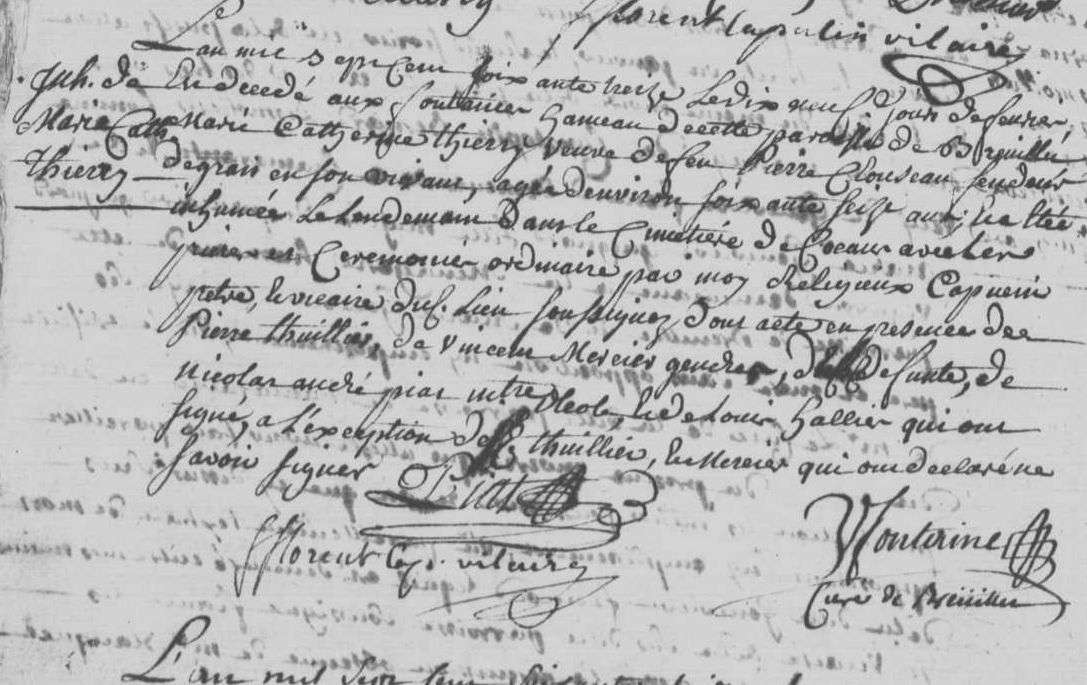 florent capucin vicaire
L'an mil sept cent soixante treize Le dix neuf jour de fevrier,
Inh. de Est decedé aux hameau de cette paroisse de Breuillet
Marie Cath. Marie Catherine Thierry veuve de feu Pierre Clouseau vendeur
Thierry de grain en son vivant, agée d'environ soixante seize ans, et a été
inhumée Le Lendemain Dans le Cimetière de ce Lieu avec les
prieres et Ceremonies ordinaire par moy Religieux Capucin
pretre, et vicaire dud. Lieu soussigné, dont acte en presence de
Pierre thuillier, de vincent Mercier gendres de la defunte, de
nicolas andré piat d'Ecole, et de Louis hallier qui ont
signé, a L'exception de thuillier, et Mercier qui ont declaré ne
savoir signer
Piat
f florent Cap. vicaire
Fontaine
Curé de Breuillet
L'an mil sept cent soixante